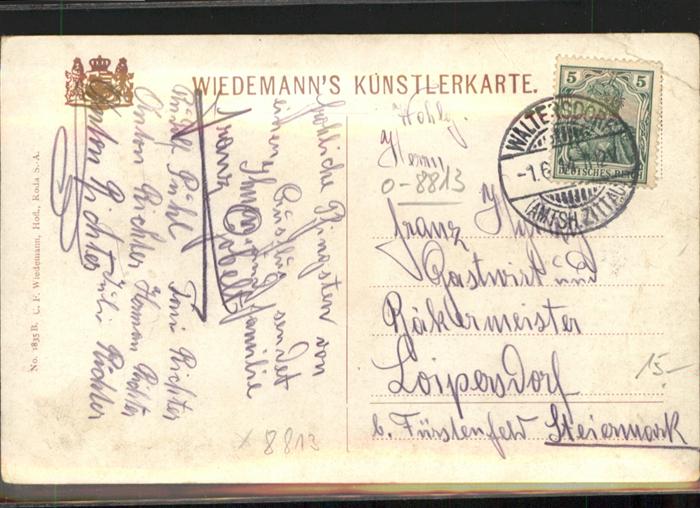 WIEDEMANN'S KÜNSTLERKARTE.
fröhliche Pfingsten von
einem Ausflug sendet
Ihnen und Familie
Franz Göbel
Rudolf Pühl Toni Richter
Anton Richter Herman Richter
Anton Richter Juli Richter
No. 1835 B. C. F. Wiedemann, Hofl., Roda S.-A.
5 5
DEUTSCHES REICH
WALTERSDORF
-1.6.
(AMTSH. ZITTAU)
Wohlg.
Herrn
0-8813
Franz
Gastwirt und
Bäkermeister
Loipersdorf
b. Fürstenfeld Steiermark
15-
x 8813